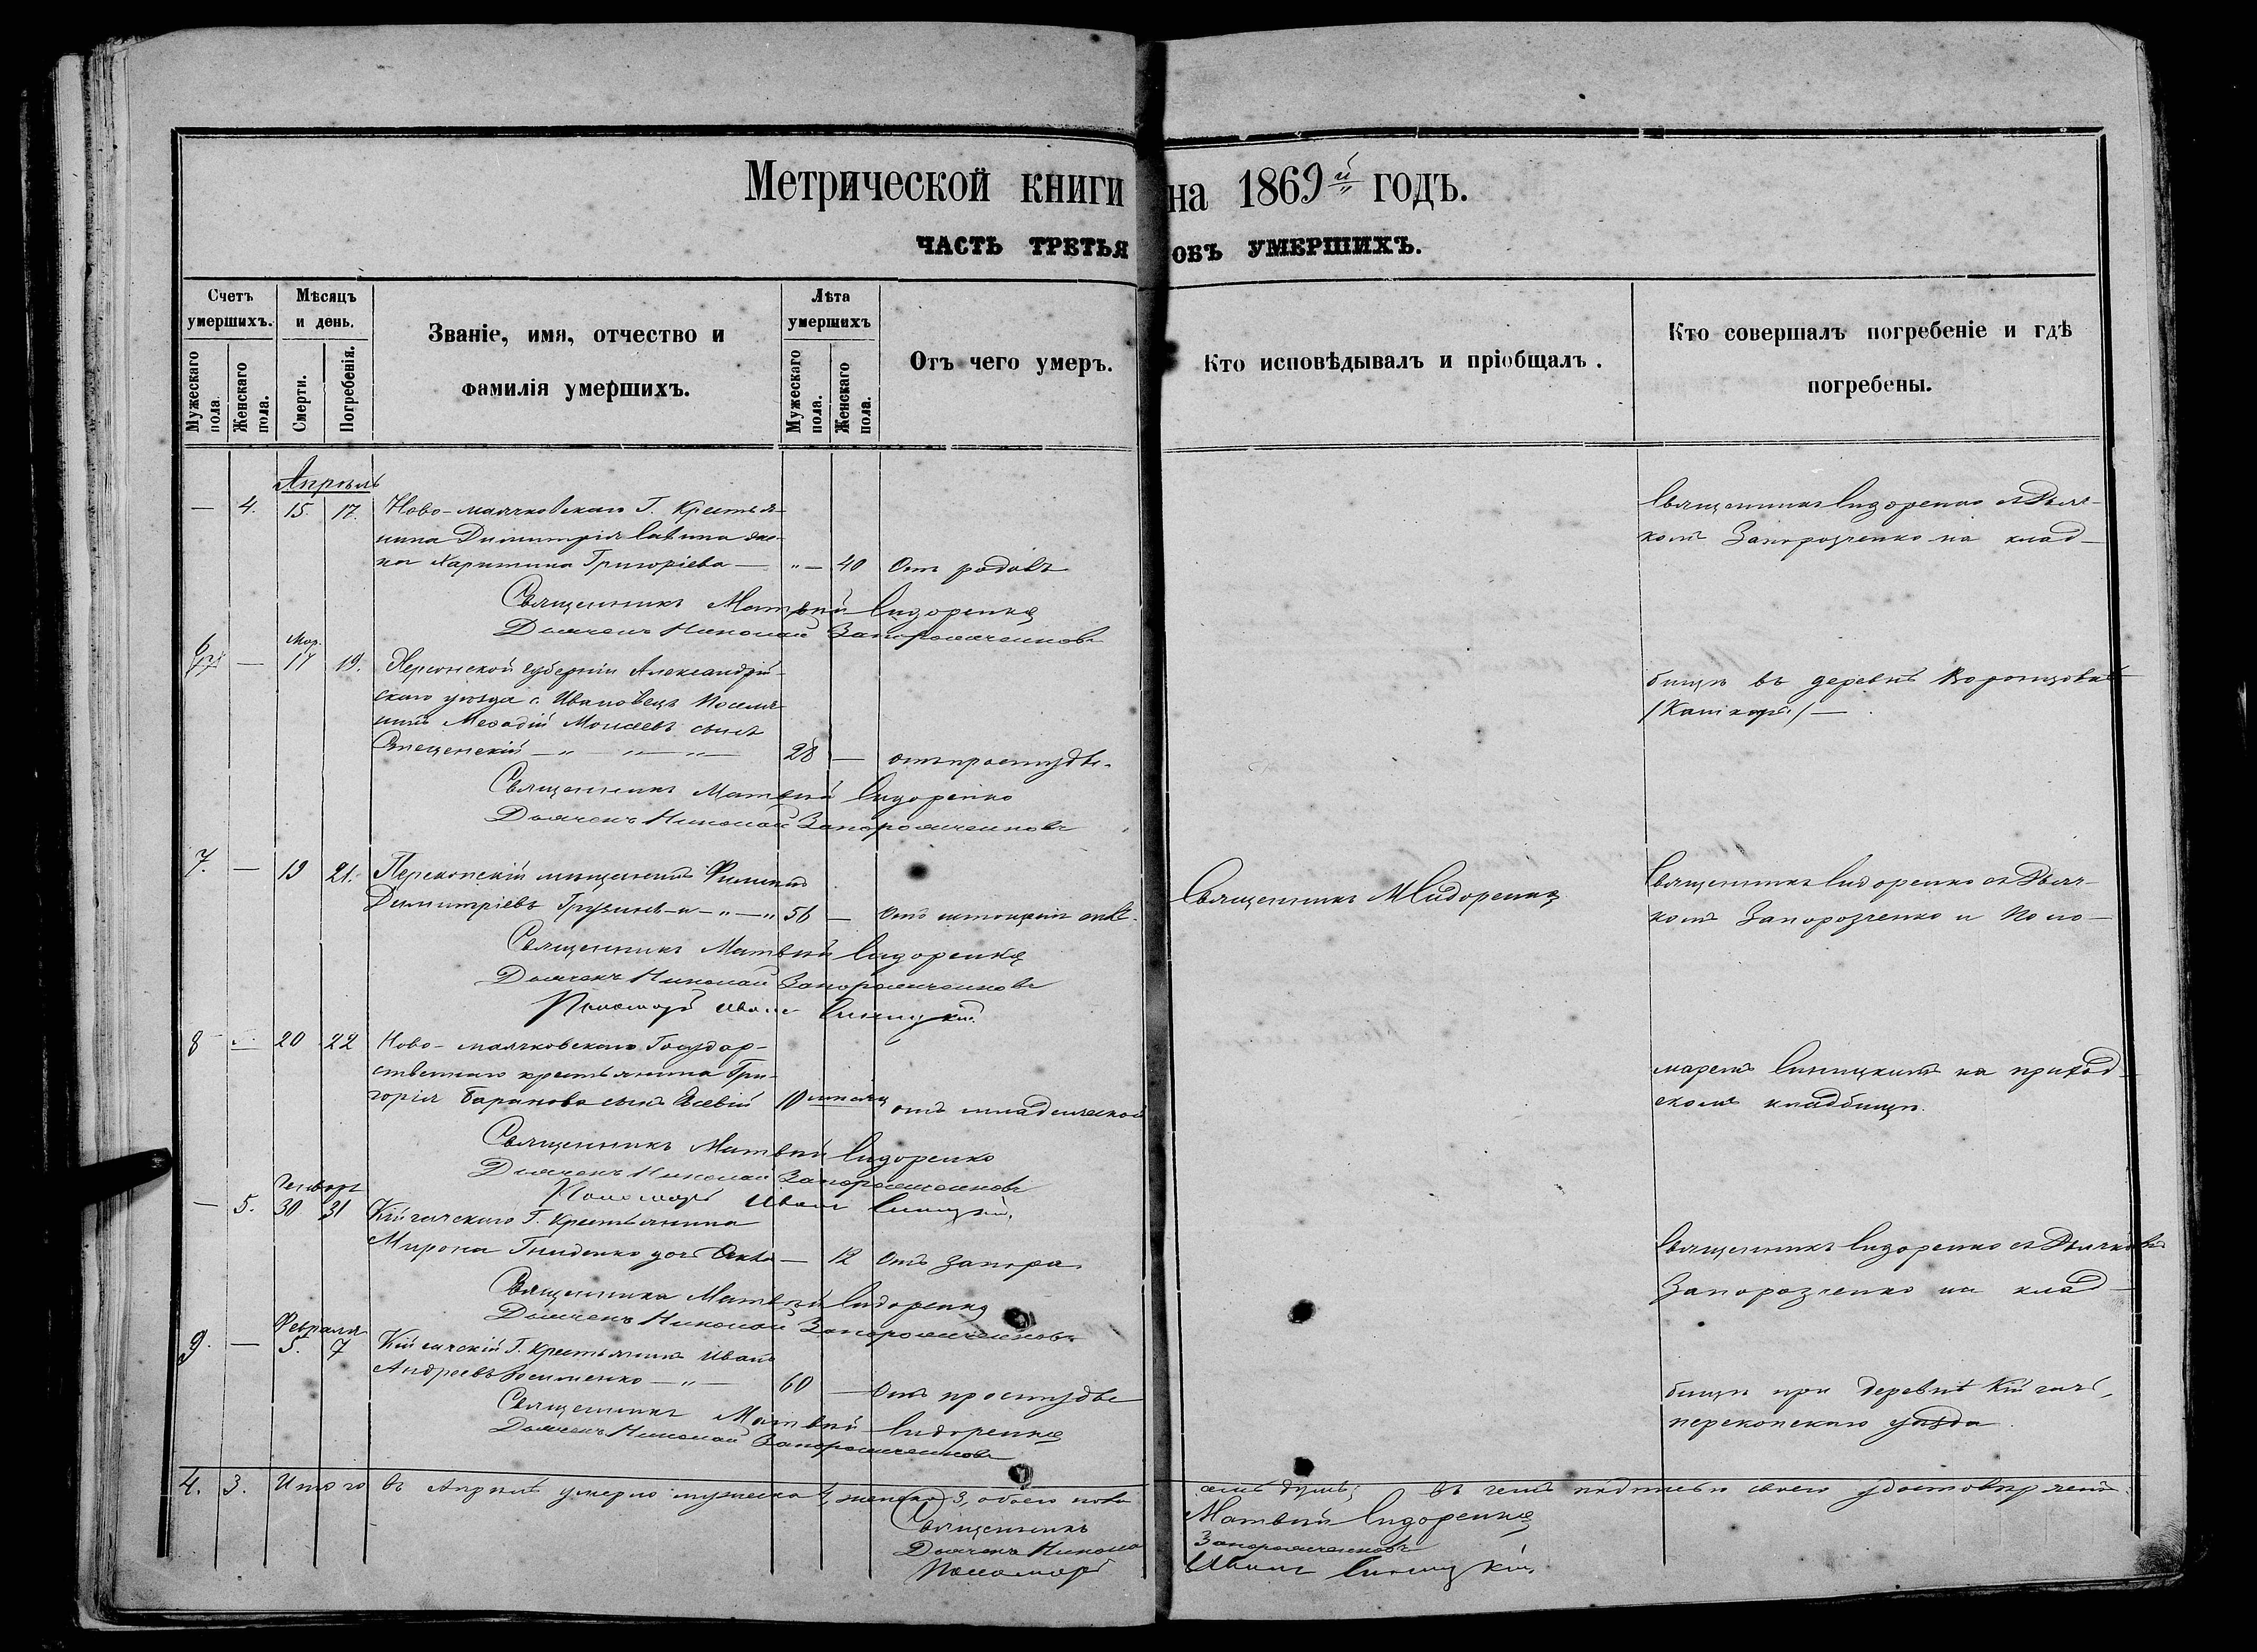 Метрической книги на 1869й годъ.
ЧАСТЬ ТРЕТЬЯ ОБЪ УМЕРШИХЪ.
Счетъ умершихъ.
Мужескаго пола
Женскаго пола.
Мѣсяцъ и день.
Смерти.
Погребенія.
Званіе, имя, отчество и
фамилія умершихъ.
Лѣта умершихъ
Мужескаго пола.
Женскаго пола.
Отъ чего умеръ.
Кто исповѣдывалъ и пріобщалъ.
Кто совершалъ погребеніе и гдѣ
погребены.
Апрѣль
— 4. 15. 17. Ново-маячковскаго Г. Крестья-
нина Димитрія Савина же-
на Харитина Григоріева — „ — 40 Отъ родовъ
Священникъ Матвѣй Сидоренко
Дьячекъ Николай Запорожченковъ
Священникъ Сидоренко съ Дьяч-
комъ Запорозченко на клад-
6 — Мар. 17 19. Херсонской губерніи Александрій-
скаго уѣзда с. Ивановецъ Поселя-
нинъ Меѳодій Моисеевъ сынъ
28 — отъ простуды.
Священникъ Матвѣй Сидоренко
Дьячекъ Николай Запорожченковъ
бищѣ въ деревнѣ Воронцовкѣ
7. — 19 21. Перекопскій мѣщанинъ Филиппъ
Димитріевъ 56 —
Священникъ Матвѣй Сидоренко
Дьячекъ Николай Запорожченковъ
Пономарь Иванъ Синицкій
Священникъ М Сидоренко
Священникъ Сидоренко съ Дьяч-
комъ Запорозченко и Поно-
8 — 20 22 Ново-маячковскаго Государ-
ственнаго крестьянина Гри-
горія Баранова сынъ 10 мѣсяц отъ младенческой
Священникъ Матвѣй Сидоренко
Дьячекъ Николай Запорожченковъ
Пономарь Иванъ Синицкій
маремъ Синицкимъ на приход-
скомъ кладбищѣ.
— 5. Генваря 30 31 Г. Крестьянина
Мирона Гниденко дочь — 12 Отъ запора
Священникъ Матвѣй Сидоренко
Дьячекъ Николай Запорожченковъ
Священникъ Сидоренко съ Дьячкомъ
Запорозченко на клад-
9. — Февраля 5. 7 Г. Крестьянинъ Иванъ
Андреевъ — „ — 60 — Отъ простуды
Священникъ Матвѣй Сидоренко
Дьячекъ Николай Запорожченковъ
бищѣ при деревнѣ
перекопскаго уѣзда.
4. 3. Итого въ Апрѣлѣ умерло мужеска 4, женска 3, обоего пола
семь душъ; въ чемъ подписью своею удостовѣряемъ.
Священникъ Матвѣй Сидоренко
Дьячекъ Николай Запорожченковъ
Пономарь Иванъ Синицкій